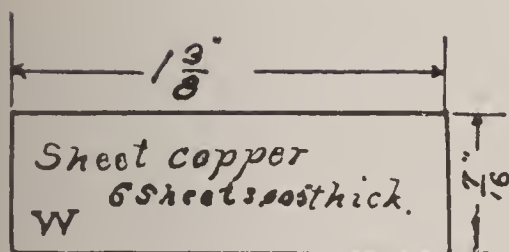 1 3/8"
Sheet copper
6 Sheets .005 thick.
W
7/16"